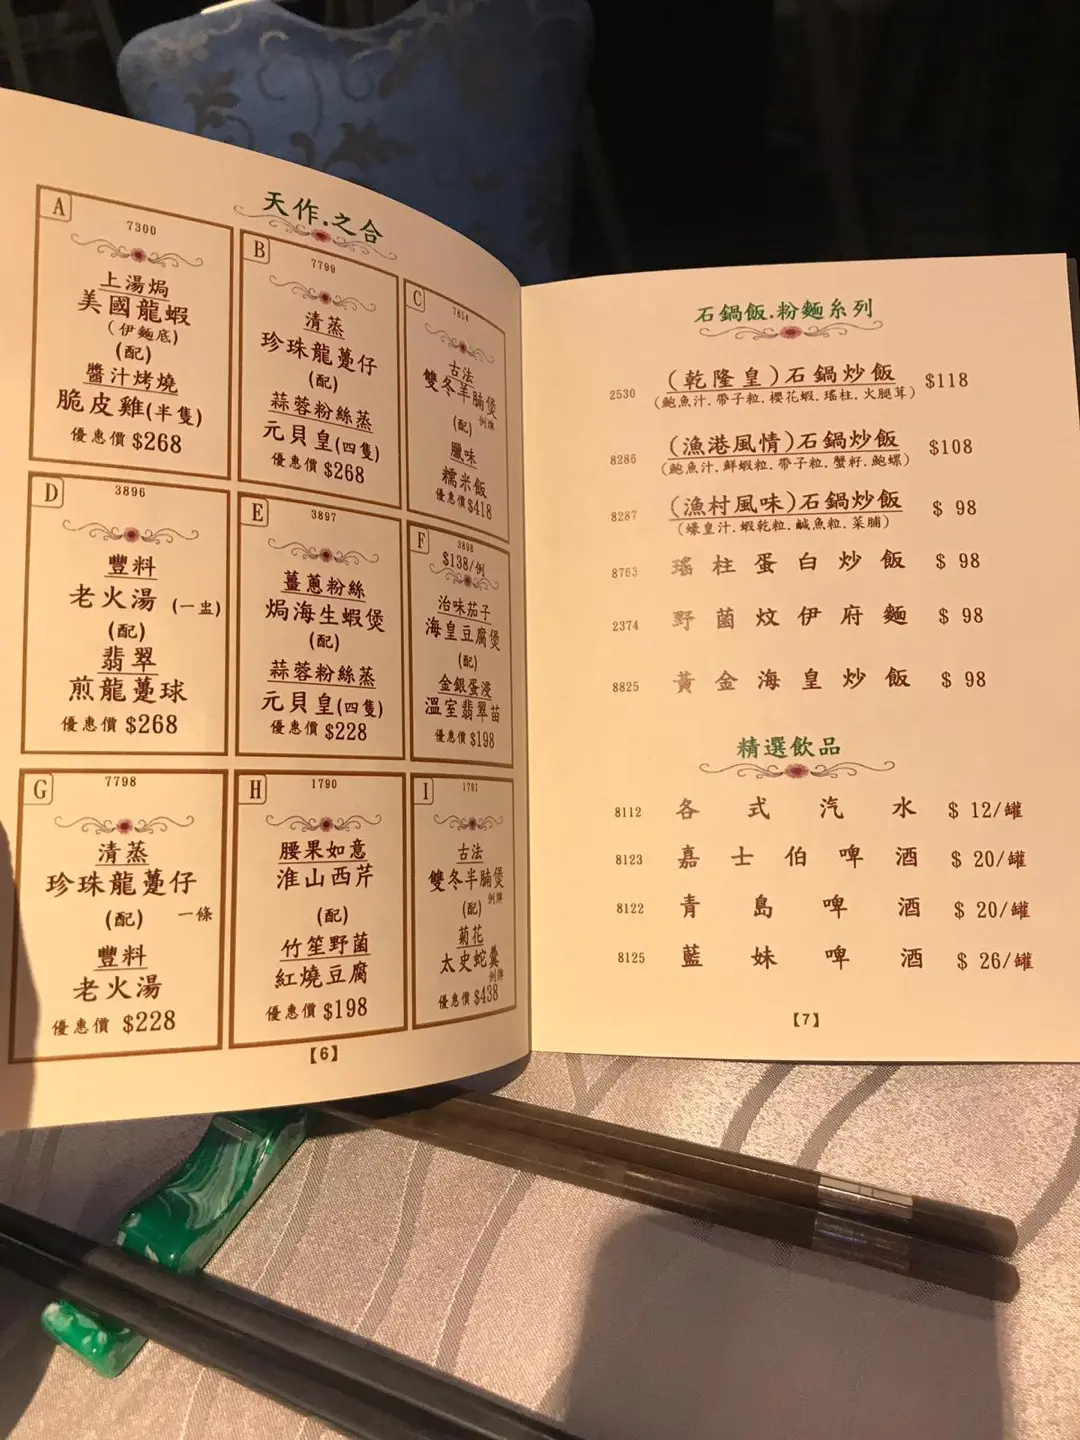 天作.之合
A
7300
上湯焗
美國龍蝦
(伊麵底)
(配)
醬汁烤燒
脆皮雞(半隻)
優惠價 $268
B
7799
清蒸
珍珠龍躉仔
(配)
蒜蓉粉絲蒸
元貝皇(四隻)
優惠價 $268
C
7854
古法
雙冬羊腩煲
例牌
(配)
臘味
糯米飯
優惠價 $418
D
3896
豐料
老火湯 (一盅)
(配)
翡翠
煎龍躉球
優惠價 $268
E
3897
薑蔥粉絲
焗海生蝦煲
(配)
蒜蓉粉絲蒸
元貝皇(四隻)
優惠價 $228
F
3898
$138/例
治味茄子
海皇豆腐煲
(配)
金銀蛋浸
溫室翡翠苗
優惠價 $198
G
7798
清蒸
珍珠龍躉仔
(配) 一條
豐料
老火湯
優惠價 $228
H
1790
腰果如意
淮山西芹
(配)
竹笙野菌
紅燒豆腐
優惠價 $198
I
1791
古法
雙冬羊腩煲
例牌
(配)
菊花
太史蛇羹
例牌
優惠價 $438
【6】
石鍋飯.粉麵系列
2530 (乾隆皇)石鍋炒飯 $118
(鮑魚汁.帶子粒.櫻花蝦.瑤柱.火腿茸)
8286 (漁港風情)石鍋炒飯 $108
(鮑魚汁.鮮蝦粒.帶子粒.蟹籽.鮑螺)
8287 (漁村風味)石鍋炒飯 $ 98
(蠔皇汁.蝦乾粒.鹹魚粒.菜脯)
8763 瑤柱蛋白炒飯 $ 98
2374 野菌炆伊府麵 $ 98
8825 黃金海皇炒飯 $ 98
精選飲品
8112 各式汽水 $ 12/罐
8123 嘉士伯啤酒 $ 20/罐
8122 青島啤酒 $ 20/罐
8125 藍妹啤酒 $ 26/罐
【7】